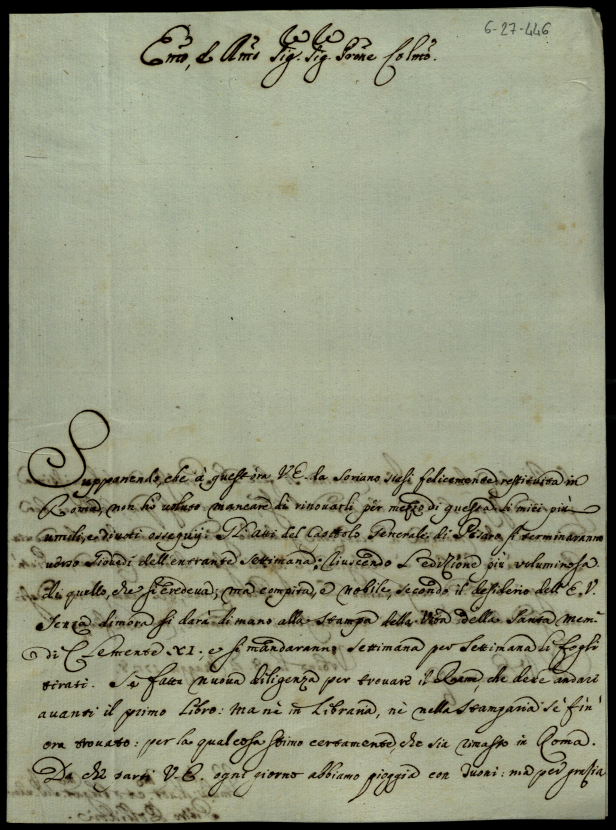 6-27-446
Em̃o, e Rm̃o Sig. Sig. Prõne Colm̃o.
Supponendo, che à quest'ora V.E. da Soriano siasi felicemente restituita in
Roma, non hò voluto mancare di rinovarli per mezzo di questa li miei più
umili, e divoti ossequij. Gl'Atti del Capitolo Generale di Pesaro si termineranno
verso Giovedì dell'entrante settimana: riuscendo l'edizione più voluminosa
di quello, che si credeva; ma compita, e nobile, secondo il desiderio dell'E.V.
Senza dimora si darà di mano alla stampa della Vita della Santa Mem.
di Clemente XI. e si mandaranno settimana per settimana li fogli
tirati. Si è fatta nuova diligenza per trovare il Rame, che deve andare
avanti il primo Libro: ma nè in Libraria, nè nella Stamparia s'è fin'
ora trovato: per la qual cosa stimo certamente, che sia rimasto in Roma.
Da che partì V.E. ogni giorno abbiamo pioggia con tuoni: ma per grazia